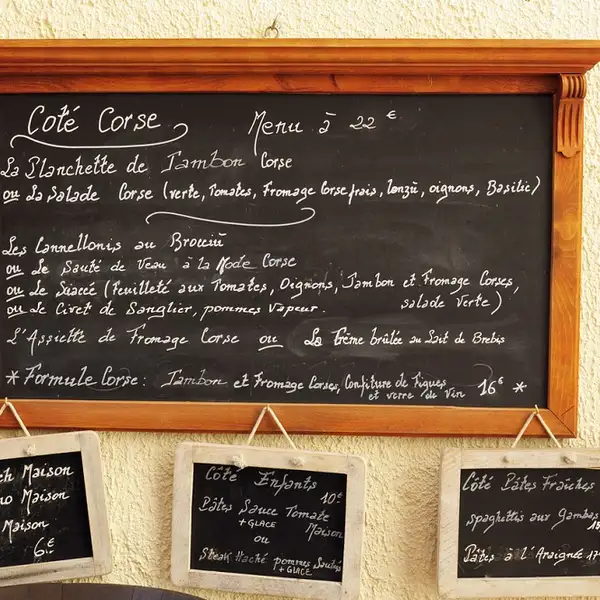 Coté Corse Menu à 22 €
La Planchette de Jambon Corse
ou La Salade Corse (verte, Tomates, Fromage Corse frais, Lonzu, oignons, Basilic)
Les Cannellonis au Brocciu
ou Le Sauté de Veau à la Mode Corse
ou Le Sciaccé (Feuilleté aux Tomates, Oignons, Jambon et Fromage Corses,
salade verte)
ou Le Civet de Sanglier, pommes vapeur.
L'Assiette de Fromage Corse ou La Crème brûlée au Lait de Brebis
* Formule Corse : Jambon et Fromage Corses, Confiture de Figues 16€ *
et verre de vin
Maison
Maison
Maison
6€
Côté Enfants
10€
Pâtes Sauce Tomate
+ GLACE Maison
ou
Steak Haché pommes Sautées
+ GLACE
Côté Pâtes Fraîches
spaghettis aux Gambas
Pâtes à l'Araignée 17